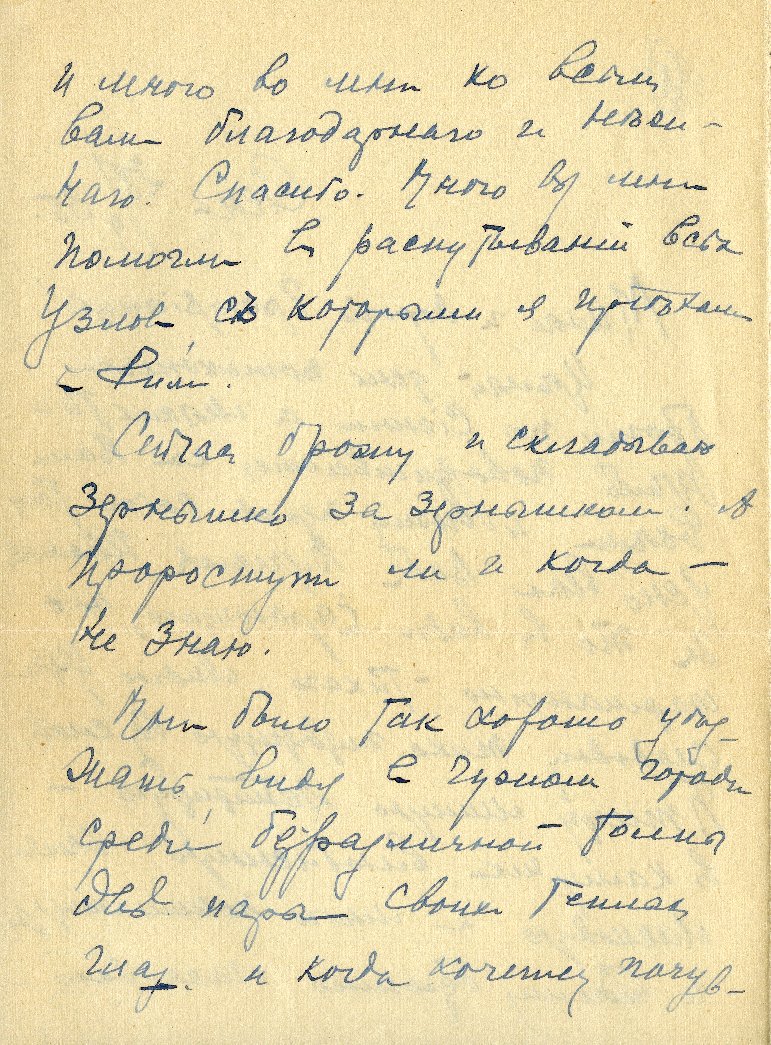 и много во мнѣ ко всѣмъ
вамъ благодарнаго и нѣж-
наго. Спасибо. Много Вы мнѣ
помогли въ распутываніи всѣхъ
узлов, съ которыми я пріѣхала
въ Римъ.
Сейчас брожу и складываю
зернышко за зернышком. А
проростут ли и когда —
не знаю.
Мнѣ было так хорошо уѣз-
жать, видя в чужом городѣ
среди безразличной толпы
двѣ пары своих теплых
глаз. и когда хочется почув-